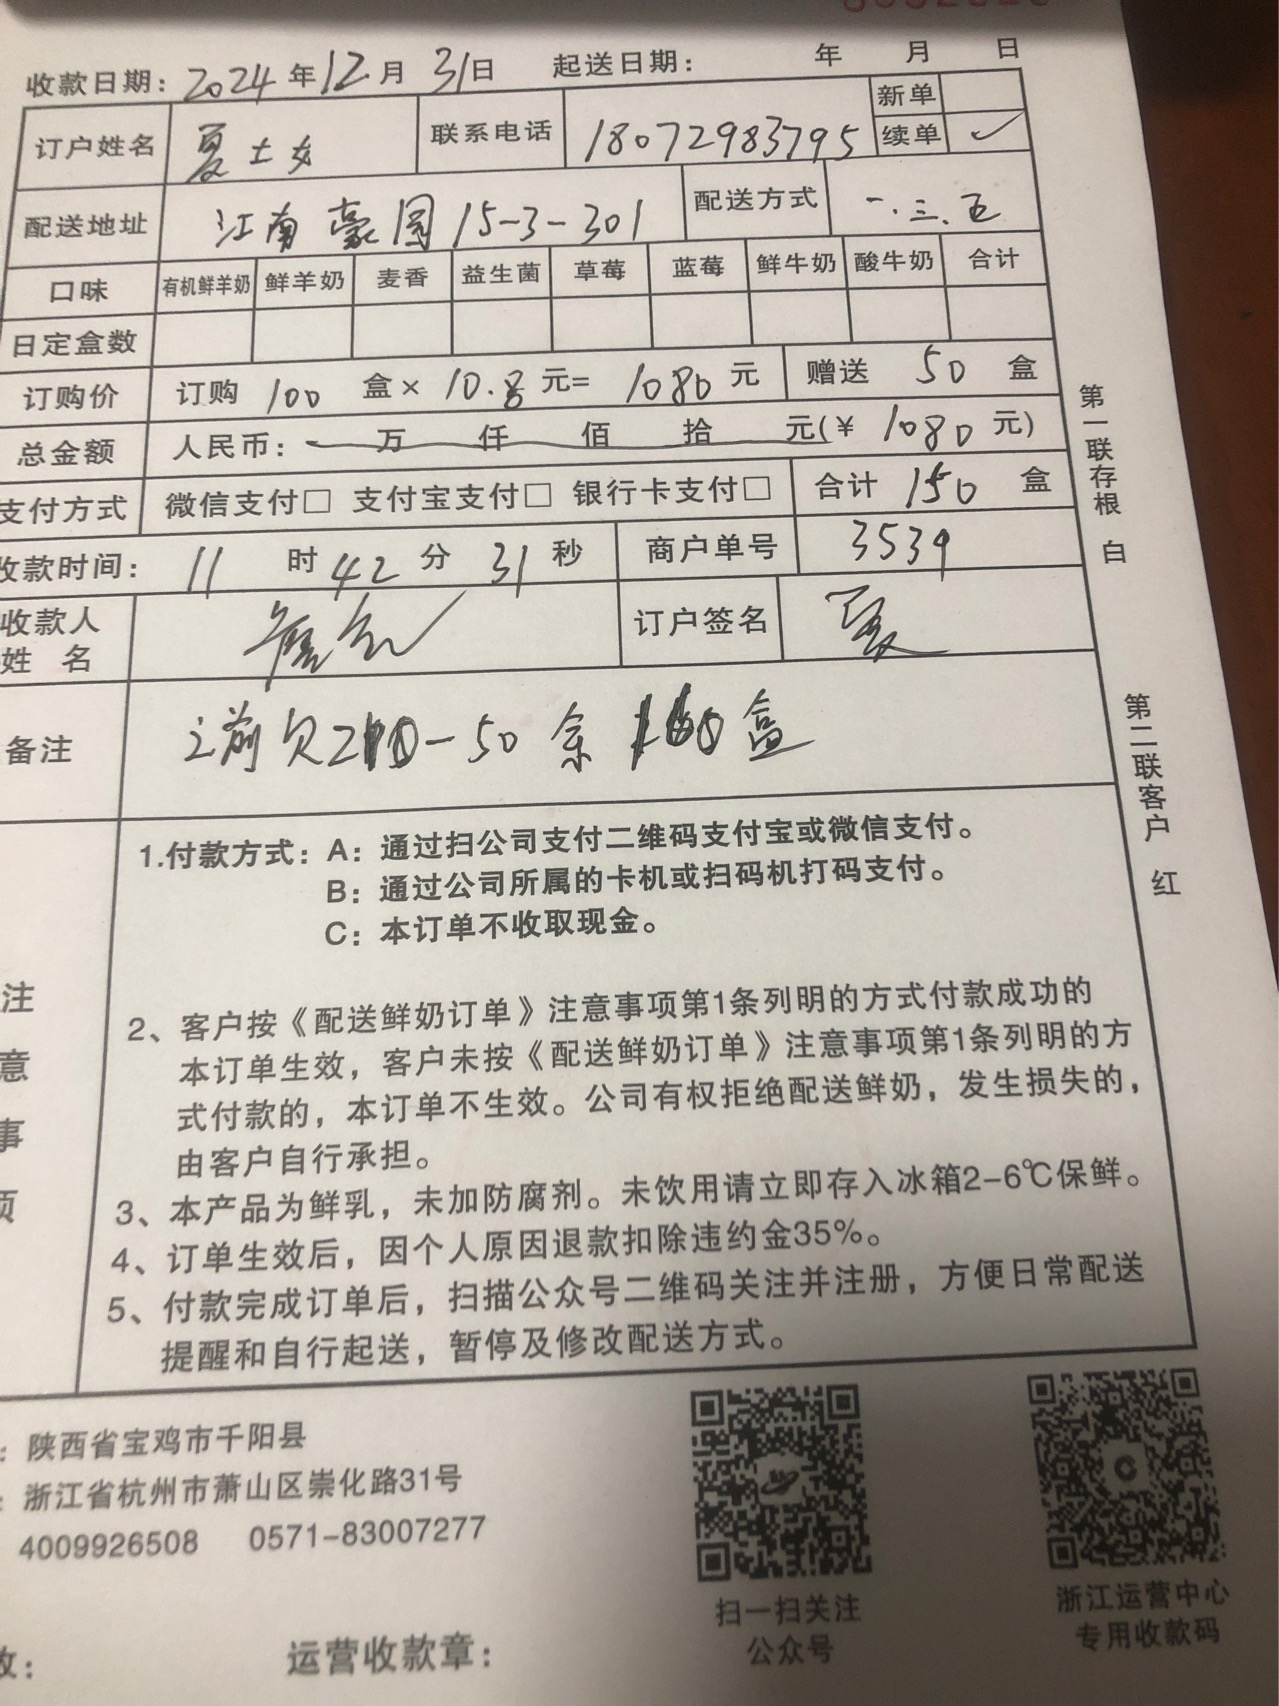 收款日期：2024年12月31日 起送日期： 年 月 日
订户姓名 夏士女 联系电话 18072983795 新单
续单 ✓
配送地址 江南豪园15-3-301 配送方式 一.三.五
口味 有机鲜羊奶 鲜羊奶 麦香 益生菌 草莓 蓝莓 鲜牛奶 酸牛奶 合计
日定盒数
订购价 订购 100 盒× 10.8 元= 1080 元 赠送 50 盒
总金额 人民币： 万 仟 佰 拾 元(¥ 1080 元)
支付方式 微信支付□ 支付宝支付□ 银行卡支付□ 合计 150 盒
收款时间： 11 时 42 分 31 秒 商户单号 3539
收款人
姓 名
订户签名 夏
备注 之前欠 -50 余 盒
1.付款方式：A：通过扫公司支付二维码支付宝或微信支付。
B：通过公司所属的卡机或扫码机打码支付。
C：本订单不收取现金。
2、客户按《配送鲜奶订单》注意事项第1条列明的方式付款成功的
本订单生效，客户未按《配送鲜奶订单》注意事项第1条列明的方
式付款的，本订单不生效。公司有权拒绝配送鲜奶，发生损失的，
由客户自行承担。
3、本产品为鲜乳，未加防腐剂。未饮用请立即存入冰箱2-6℃保鲜。
4、订单生效后，因个人原因退款扣除违约金35%。
5、付款完成订单后，扫描公众号二维码关注并注册，方便日常配送
提醒和自行起送，暂停及修改配送方式。
注
意
事
项
第一联存根 白
第二联客户 红
：陕西省宝鸡市千阳县
：浙江省杭州市萧山区崇化路31号
4009926508 0571-83007277
扫一扫关注
公众号
浙江运营中心
专用收款码
运营收款章：